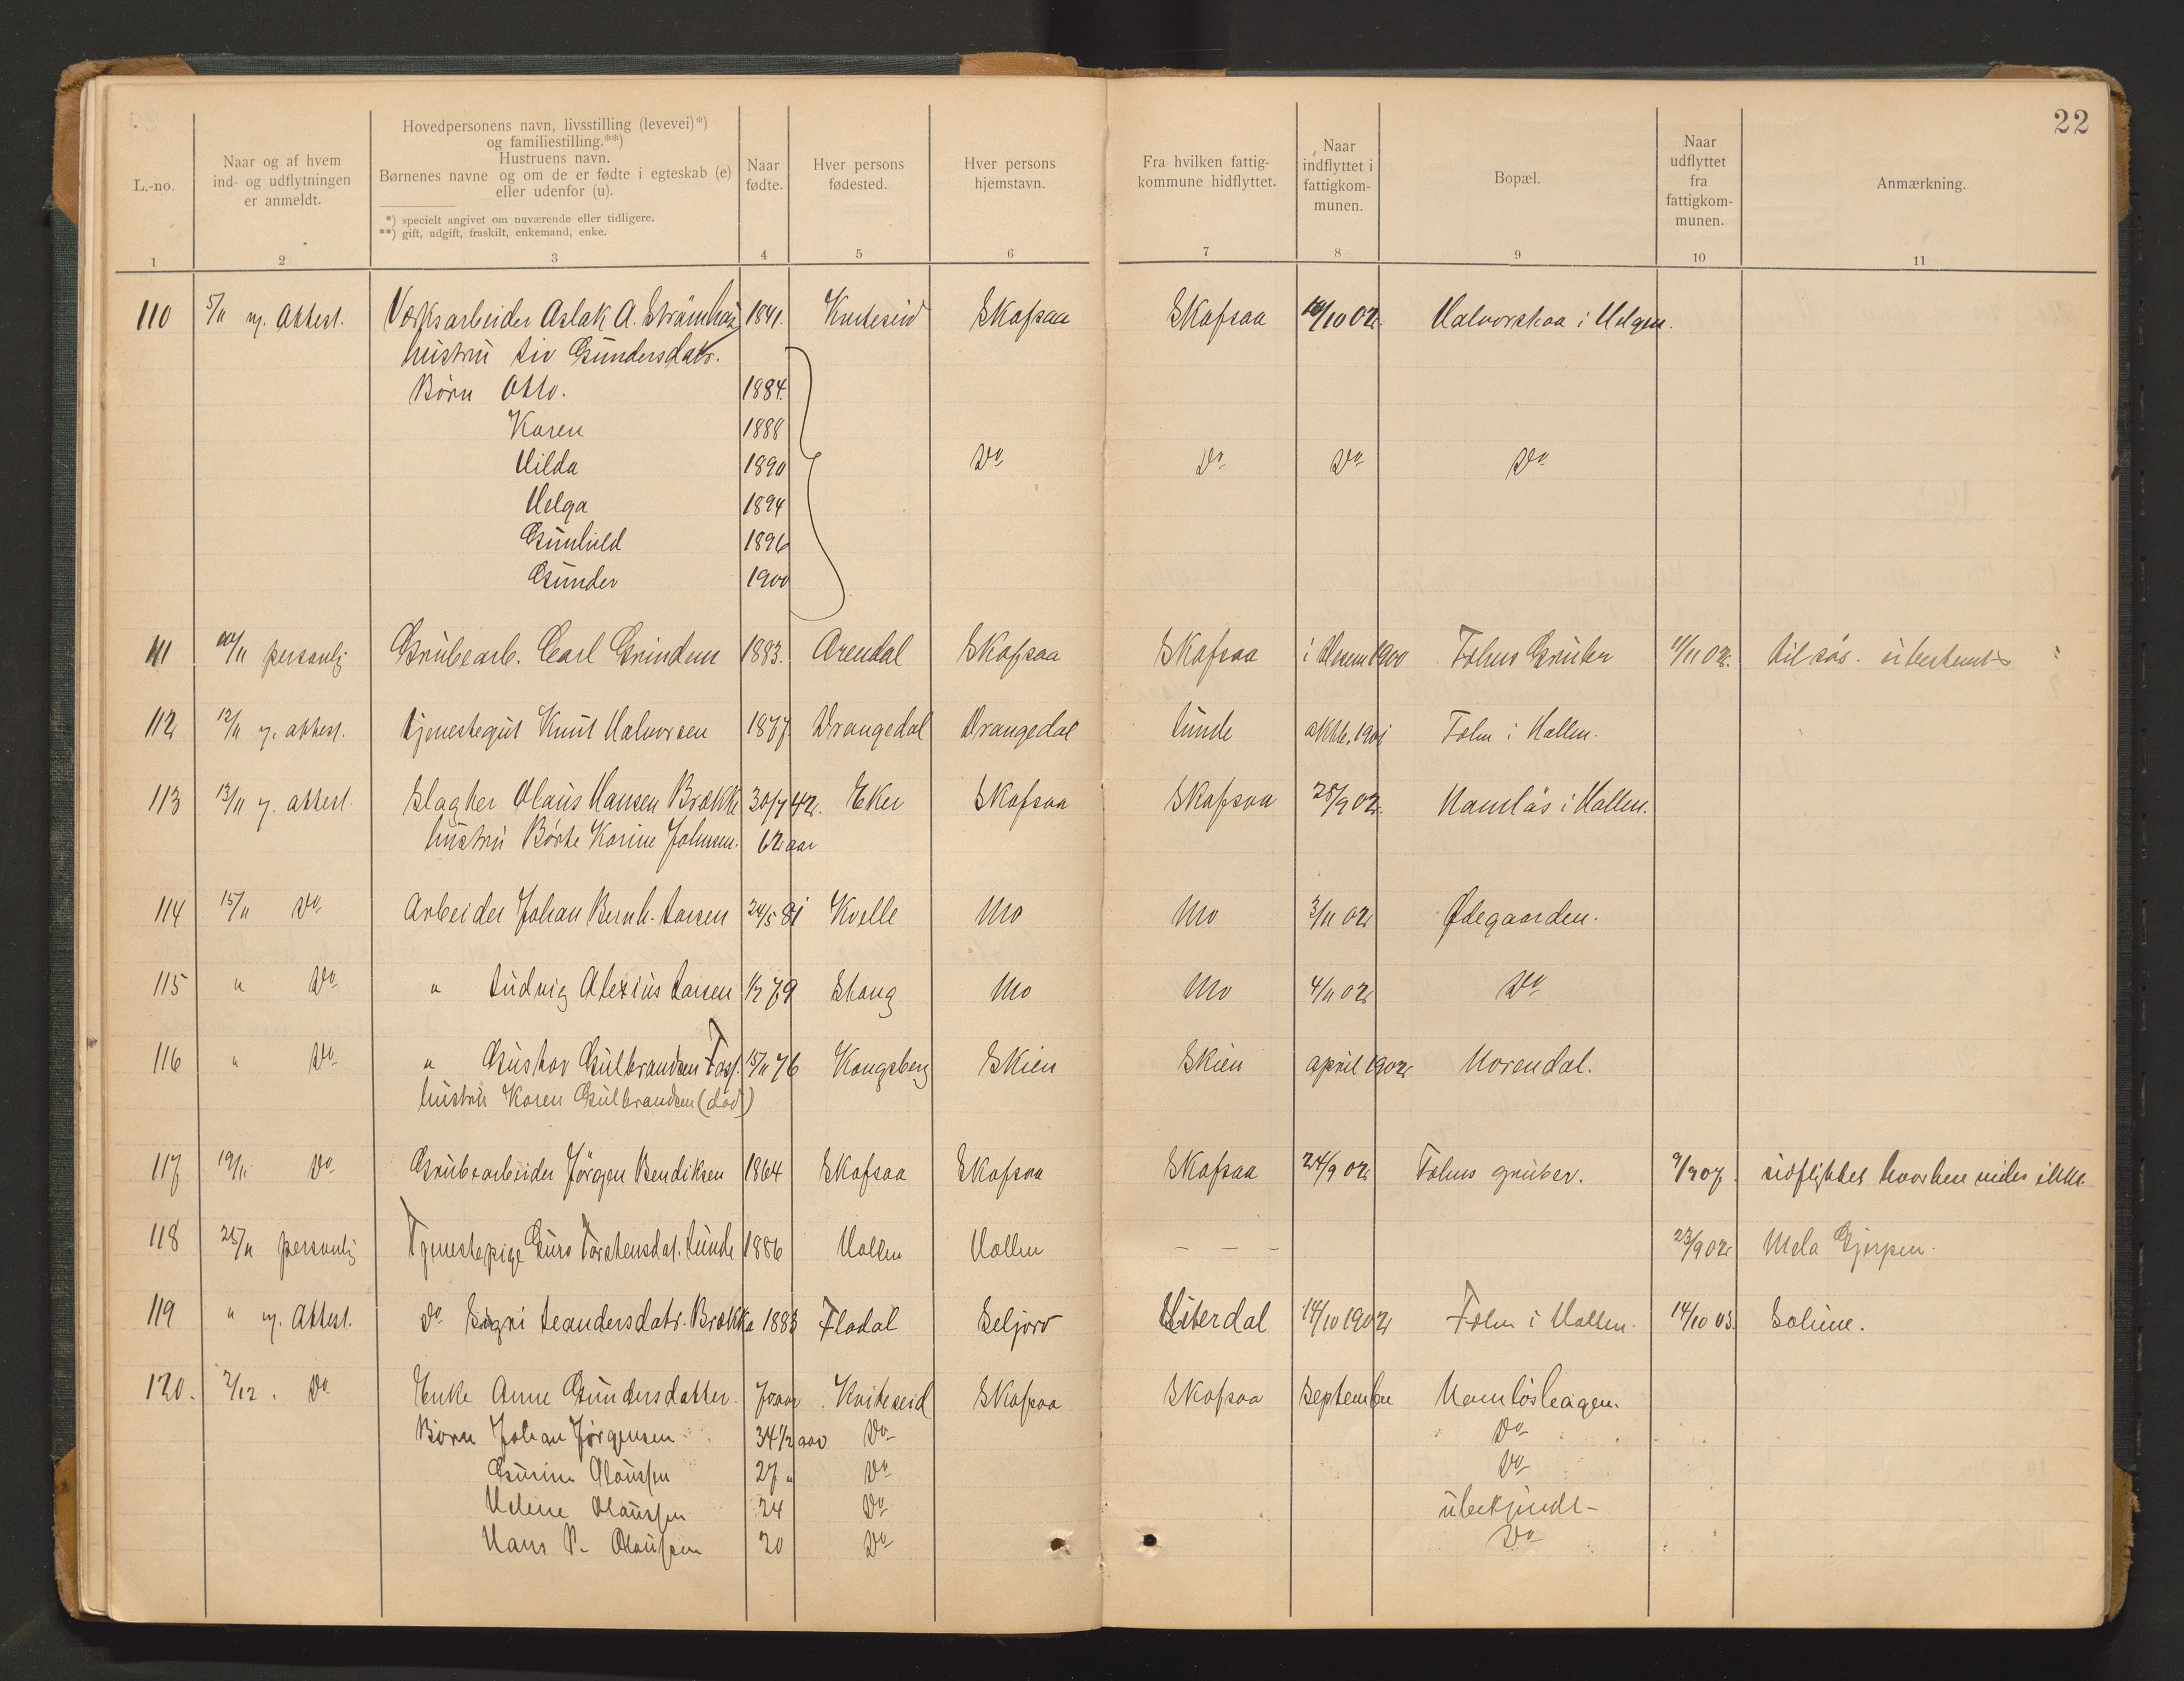 22
L.-no.
Naar og af hvem
ind- og udflytningen
er anmeldt.
Hovedpersonens navn, livsstilling (levevei)*)
og familiestilling.**)
Hustruens navn.
Børnenes navne og om de er fødte i egteskab (e)
eller udenfor (u).
*) specielt angivet om nuværende eller tidligere.
**) gift, udgift, fraskilt, enkemand, enke.
Naar
fødte.
Hver persons
fødested.
Hver persons
hjemstavn.
Fra hvilken fattig-
kommune hidflyttet.
Naar
indflyttet i
fattigkom-
munen.
Bopæl.
Naar
udflyttet
fra
fattigkom-
munen.
Anmærkning.
1 2 3 4 5 6 7 8 9 10 11
110 5/11 Attest. Værksarbeider Aslak A. 1841. Skafsaa Skafsaa /10 02 i Helgen.
hustru Liv Gundersdatr.
Børn Otto. 1884.
Karen 1888
Hilda 1890 Do Do Do Do
Helga 1894
Gunhild 1896
Gunder 1900
111 /11 personlig Grubearb. Carl Grindem 1883. Arendal Skafsaa Skafsaa i 1900 Fehns Gruber 11/11 02. til søs. ubestemt
112 12/11 attest. tjenestegut Knut Halvorsen 1877. Drangedal Drangedal Lunde oktb. 1901 Fehn i Hollen.
113 13/11 attest. Slagter Olaus Hansen Brække 30/7 42. Eker Skafsaa Skafsaa 28/9 02. Namløs i Hollen.
hustru Børte Karine Johnsen. 62 aar
114 15/11 Do Arbeider Johan Bernh. Larsen 24/5 81 Kvelle Mo Mo 3/11 02 Ødegaarden.
115 " Do " Ludvig Alexius Larsen 1/2 79 Skaug Mo Mo 4/11 02 Do
116 " Do " Gustav Gulbrandsen 15/11 76 Kongsberg Skien Skien april 1902 Norendal.
hustru Karen Gulbrandsen (død)
117 19/11 Do Grubearbeider Jørgen Bendiksen 1864 Skafsaa Skafsaa Skafsaa 24/9 02 Fehns gruber. 9/9 07. udflyttet hvorhen vides ikke.
118 25/11 personlig Tjenestepige Guro Torstensdat. Lunde 1886 Hollen Hollen - - - 23/9 02 Mela Gjerpen.
119 " Attest. Do Leandersdatr. Brækka 1883 Fladal Seljord Hiterdal 14/10 1902 Fehn i Hollen. 14/10 03. Solum.
120. 2/12. Do Enke Anne Gundersdatter. Kviteseid Skafsaa Skafsaa September Namløshagen.
Børn Johan Jørgensen 34 1/2 aar Do Do
Gurine Olaussen 27 " Do Do
Helene Olaussen 24 Do ubekjendt-
Hans P. Olaussen 20 Do Do